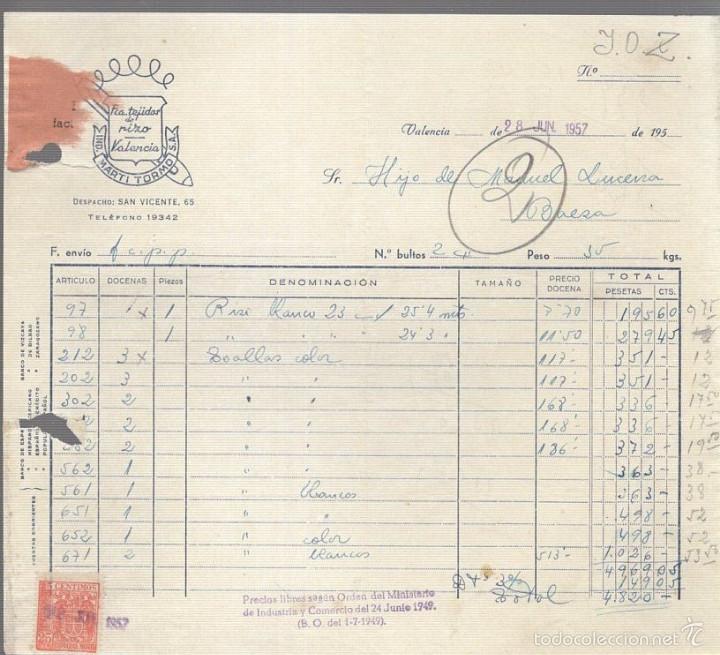 J.O.Z.
N.º
fac.
Fca. tejidos
de
rizo
Valencia
IND. MARTI TORMO S.A.
DESPACHO: SAN VICENTE, 65
TELÉFONO 19342
Valencia de 28 JUN. 1957 de 195
Sr. Hijo de Manuel Lucena
2
Baeza
F. envio f.c.p.p. N.º bultos 2 Peso 35 kgs.
ARTICULO DOCENAS Piezas DENOMINACIÓN TAMAÑO PRECIO DOCENA TOTAL PESETAS CTS.
97 1 Rizo blanco 23 c/ 25'4 mts. 7'70 195 60
98 1 " " " 24'3 " 11'50 279 45
212 3 x Toallas color 117- 351 - 12
202 3 " " 117- 351 - 12
302 2 " " 168- 336 - 17'50
2 " " 168- 336 -
2 " " 186- 372 - 19'50
562 1 " " 363 - 38-
561 1 " blancos 363 - 38
651 1 " " 498 - 52
652 1 " color 498 - 52
671 2 " blancos 513- 1.026 - 53'50
4969 05
Dto 3% 149 05
Total 4.820 -
BANCO DE VIZCAYA
" DE BILBAO
" ZARAGOZANO
BANCO DE ESPAÑA
" HISPANO AMERICANO
" ESPAÑOL CRÉDITO
" POPULAR ESPAÑOL
CUENTAS CORRIENTES
Precios libres según Orden del Ministerio
de Industria y Comercio del 24 Junio 1949.
(B. O. del 1-7-1949).
5 CENTIMOS
25
1957
todocoleccion.net